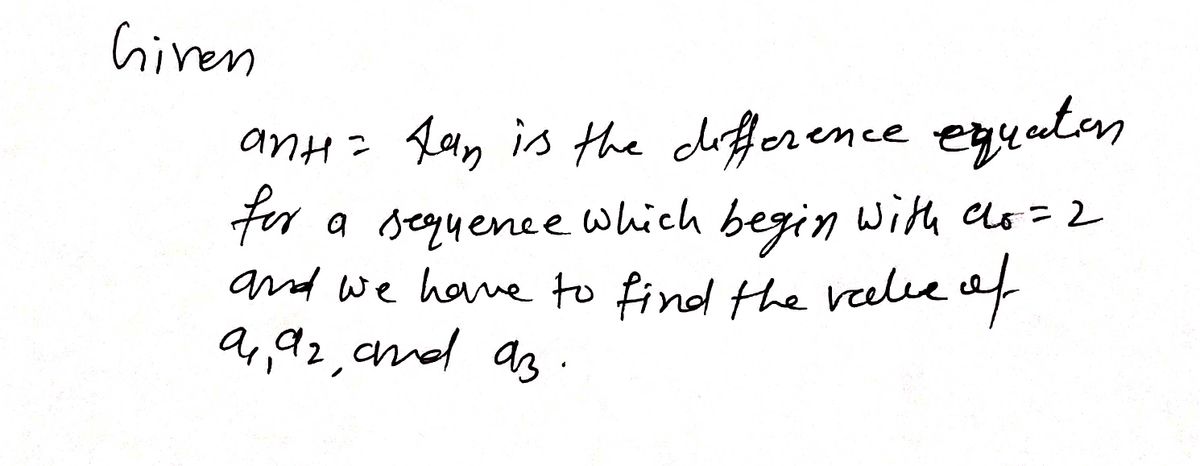 Given
an+1 = 4an is the difference equation
for a sequence which begin with a0 = 2
and we have to find the value of
a1, a2, and a3.